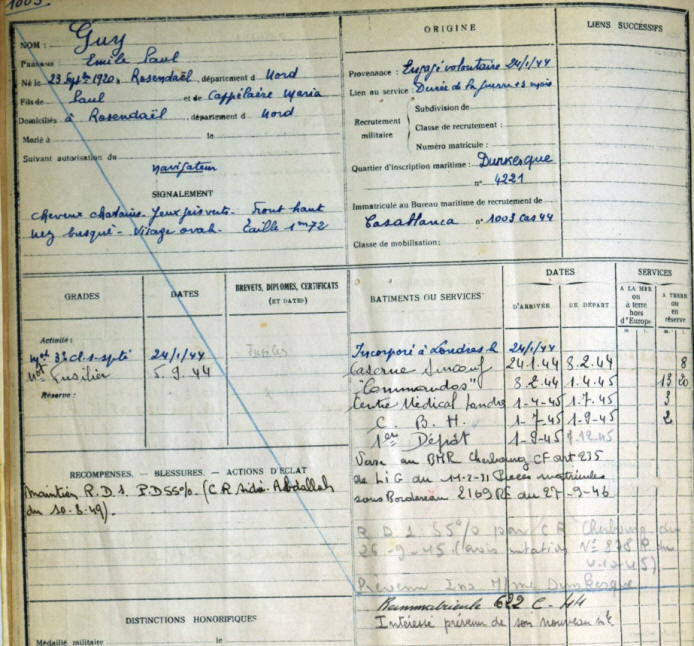 1003.
NOM : Guy
Prénoms Emile Paul
Né le 23 Septbre 1920, Rosendaël, département d Nord
Fils de Paul et de Cappelaère Maria
Domiciliés à Rosendaël, département d Nord
Marié à le
Suivant autorisation du
navigateur
SIGNALEMENT
cheveux chatains. Yeux gris verts. Front haut
nez busqué - Visage ovale. Taille 1m72
ORIGINE
Provenance : Engagé volontaire 24/1/44
Lien au service Durée de la guerre + 3 mois
Recrutement militaire
Subdivision de
Classe de recrutement :
Numéro matricule :
Quartier d'inscription maritime : Dunkerque
n° 4221
Immatriculé au Bureau maritime de recrutement de
Casablanca n° 1003 Cas 44
Classe de mobilisation :
LIENS SUCCESSIFS
GRADES
DATES
BREVETS, DIPLOMES, CERTIFICATS
(ET DATES)
Activité :
Mot 3e cl. s. spté 24/1/44 Fusilier
Mot Fusilier 5.9.44
Réserve :
RECOMPENSES. — BLESSURES. — ACTIONS D'ÉCLAT
Maintien R.D.1. P.D 55% (C R Sidi-Abdallah
du 10.8.49).
DISTINCTIONS HONORIFIQUES
Médaillé militaire le
BATIMENTS OU SERVICES
DATES
D'ARRIVÉE
DE DÉPART
SERVICES
A LA MER
ou
à terre
hors
d'Europe
A TERRE
ou
en
réserve
Incorporé à Londres le 24/1/44
Caserne Surcouf 24.1.44 8.2.44 8
"Commandos" 8.2.44 1.4.45 13 20
Centre Médical Londres 1-4-45 1.7.45 3
C. B. H. 1-7-45 1-9-45 2
1er Dépôt 1-9-45
Versé au BMR Cherbourg CF art 235
de l'IG du 11-2-31 Pièces matricules
sous Bordereau 2169 RE du 27-9-46
R D 1 55% par C R Cherbourg du
26-9-45 (avis mutation N°
Prévenu Ins Mme Dunkerque
Reimmatriculé 622 C. 44
Intéressé prévenu de son nouveau